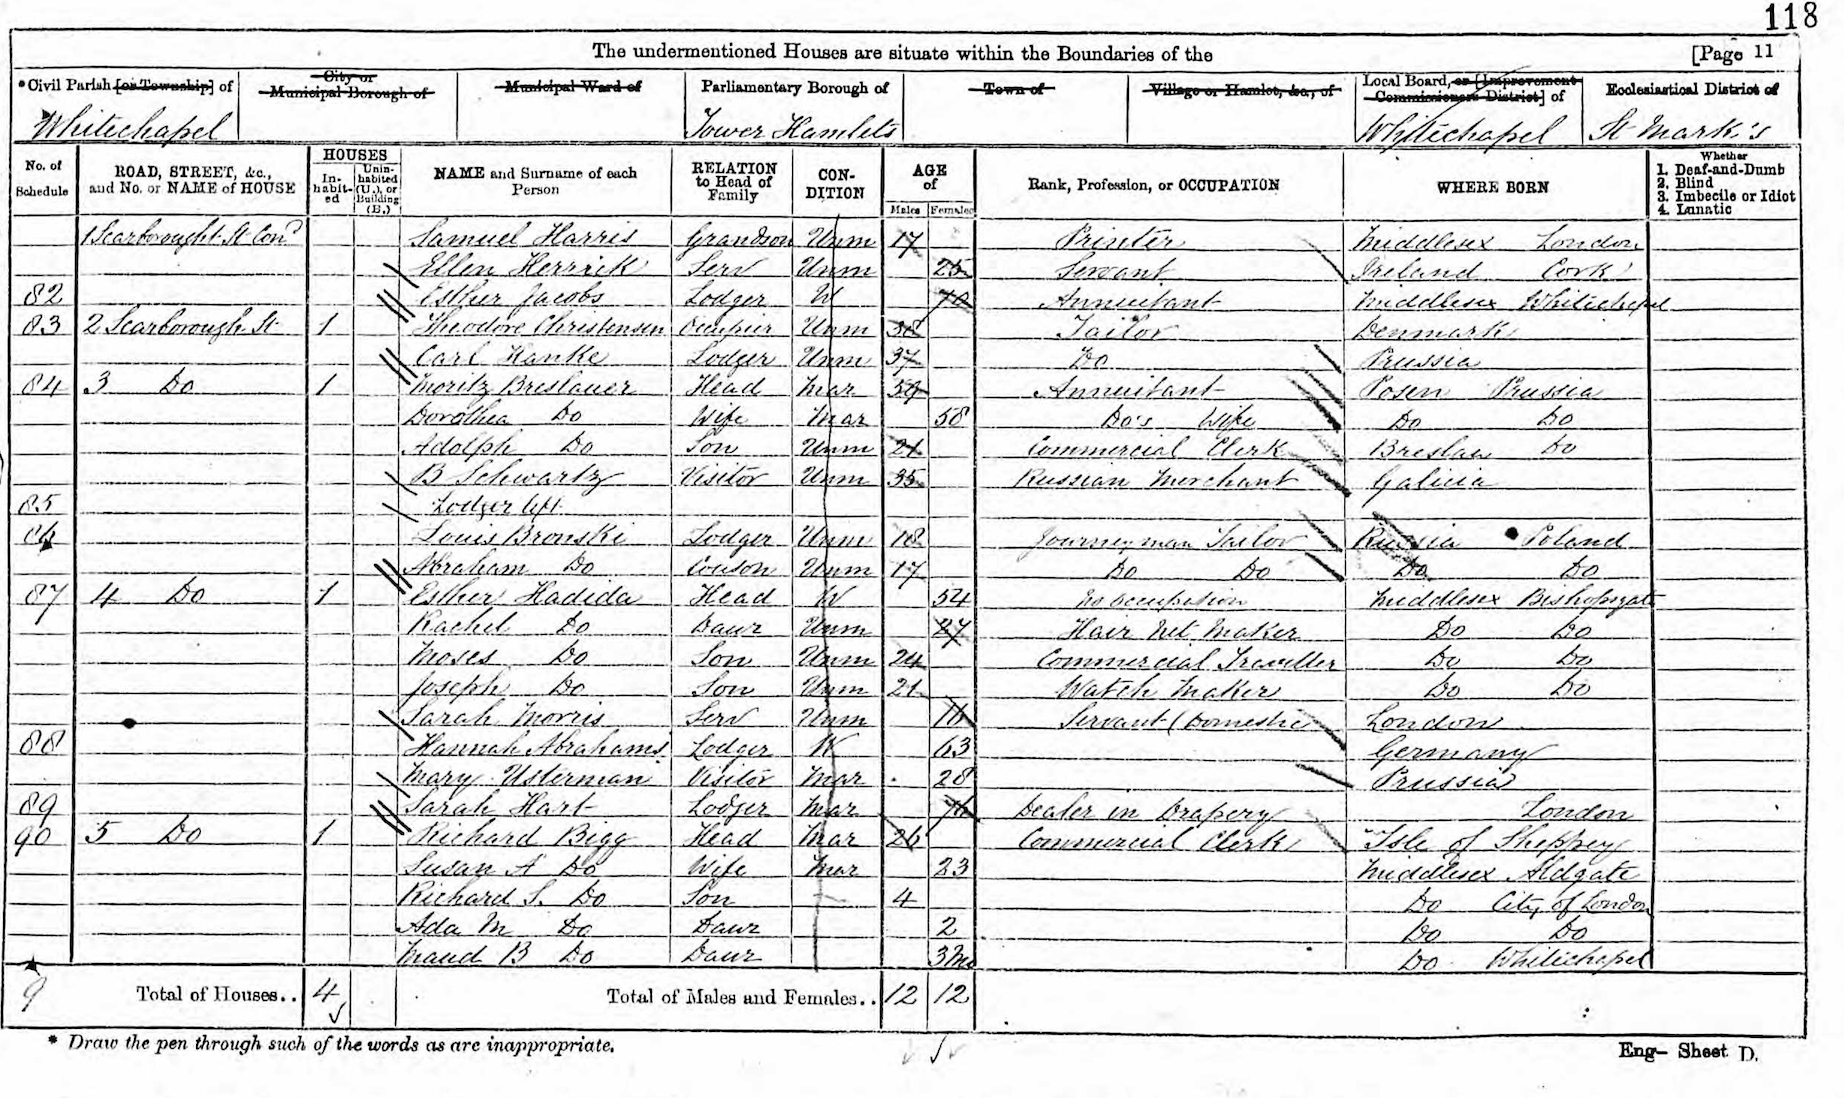 118
The undermentioned Houses are situate within the Boundaries of the [Page 11
*Civil Parish [or Township] of City or Municipal Borough of Municipal Ward of Parliamentary Borough of Town of Village or Hamlet, &c., of Local Board, or [Improvement Commissioners District] of Ecclesiastical District of
Whitechapel Tower Hamlets Whitechapel St Mark's
No. of Schedule ROAD, STREET, &c., and No. or NAME of HOUSE HOUSES Inhabited Uninhabited (U.), or Building (B.) NAME and Surname of each Person RELATION to Head of Family CONDITION AGE of Males Females Rank, Profession, or OCCUPATION WHERE BORN Whether 1. Deaf-and-Dumb 2. Blind 3. Imbecile or Idiot 4. Lunatic
1 Scarborought St Cond Samuel Harris Grandson Unm 17 Printer Middlesex London
Ellen Herrick Serv Unm 25 Servant Ireland Cork
82 Esther Jacobs Lodger W 70 Annuitant Middlesex Whitechapel
83 2 Scarborough St 1 Theodore Christensen Occupier Unm 38 Tailor Denmark
Carl Hanke Lodger Unm 37 Do Prussia
84 3 Do 1 Moritz Breslauer Head Mar 59 Annuitant Posen Prussia
Dorothea Do Wife Mar 58 Do's Wife Do Do
Adolph Do Son Unm 21 Commercial Clerk Breslau Do
B Schwartz Visitor Unm 35 Russian Merchant Galicia
85 Lodger left
86 Louis Bronski Lodger Unm 18 Journeyman Tailor Russia Poland
Abraham Do Cousin Unm 17 Do Do Do Do
87 4 Do 1 Esther Hadida Head W 54 No occupation Middlesex Bishopsgate
Rachel Do Daur Unm 27 Hair Net Maker Do Do
Moses Do Son Unm 24 Commercial Traveller Do Do
Joseph Do Son Unm 21 Watch Maker Do Do
Sarah Morris Serv Unm 16 Servant (Domestic London
88 Hannah Abrahams Lodger W 63 Germany
Mary Usterman Visitor Mar 28 Prussia
89 Sarah Hart Lodger Mar Dealer in Drapery London
90 5 Do 1 Richard Bigg Head Mar 26 Commercial Clerk Isle of Sheppey
Susan A Do Wife Mar 23 Middlesex Aldgate
Richard S. Do Son 4 Do City of London
Ada M Do Daur 2 Do Do
Maud B Do Daur 3 Mo Do Whitechapel
9 Total of Houses.. 4 Total of Males and Females.. 12 12
* Draw the pen through such of the words as are inappropriate.
Eng— Sheet D.